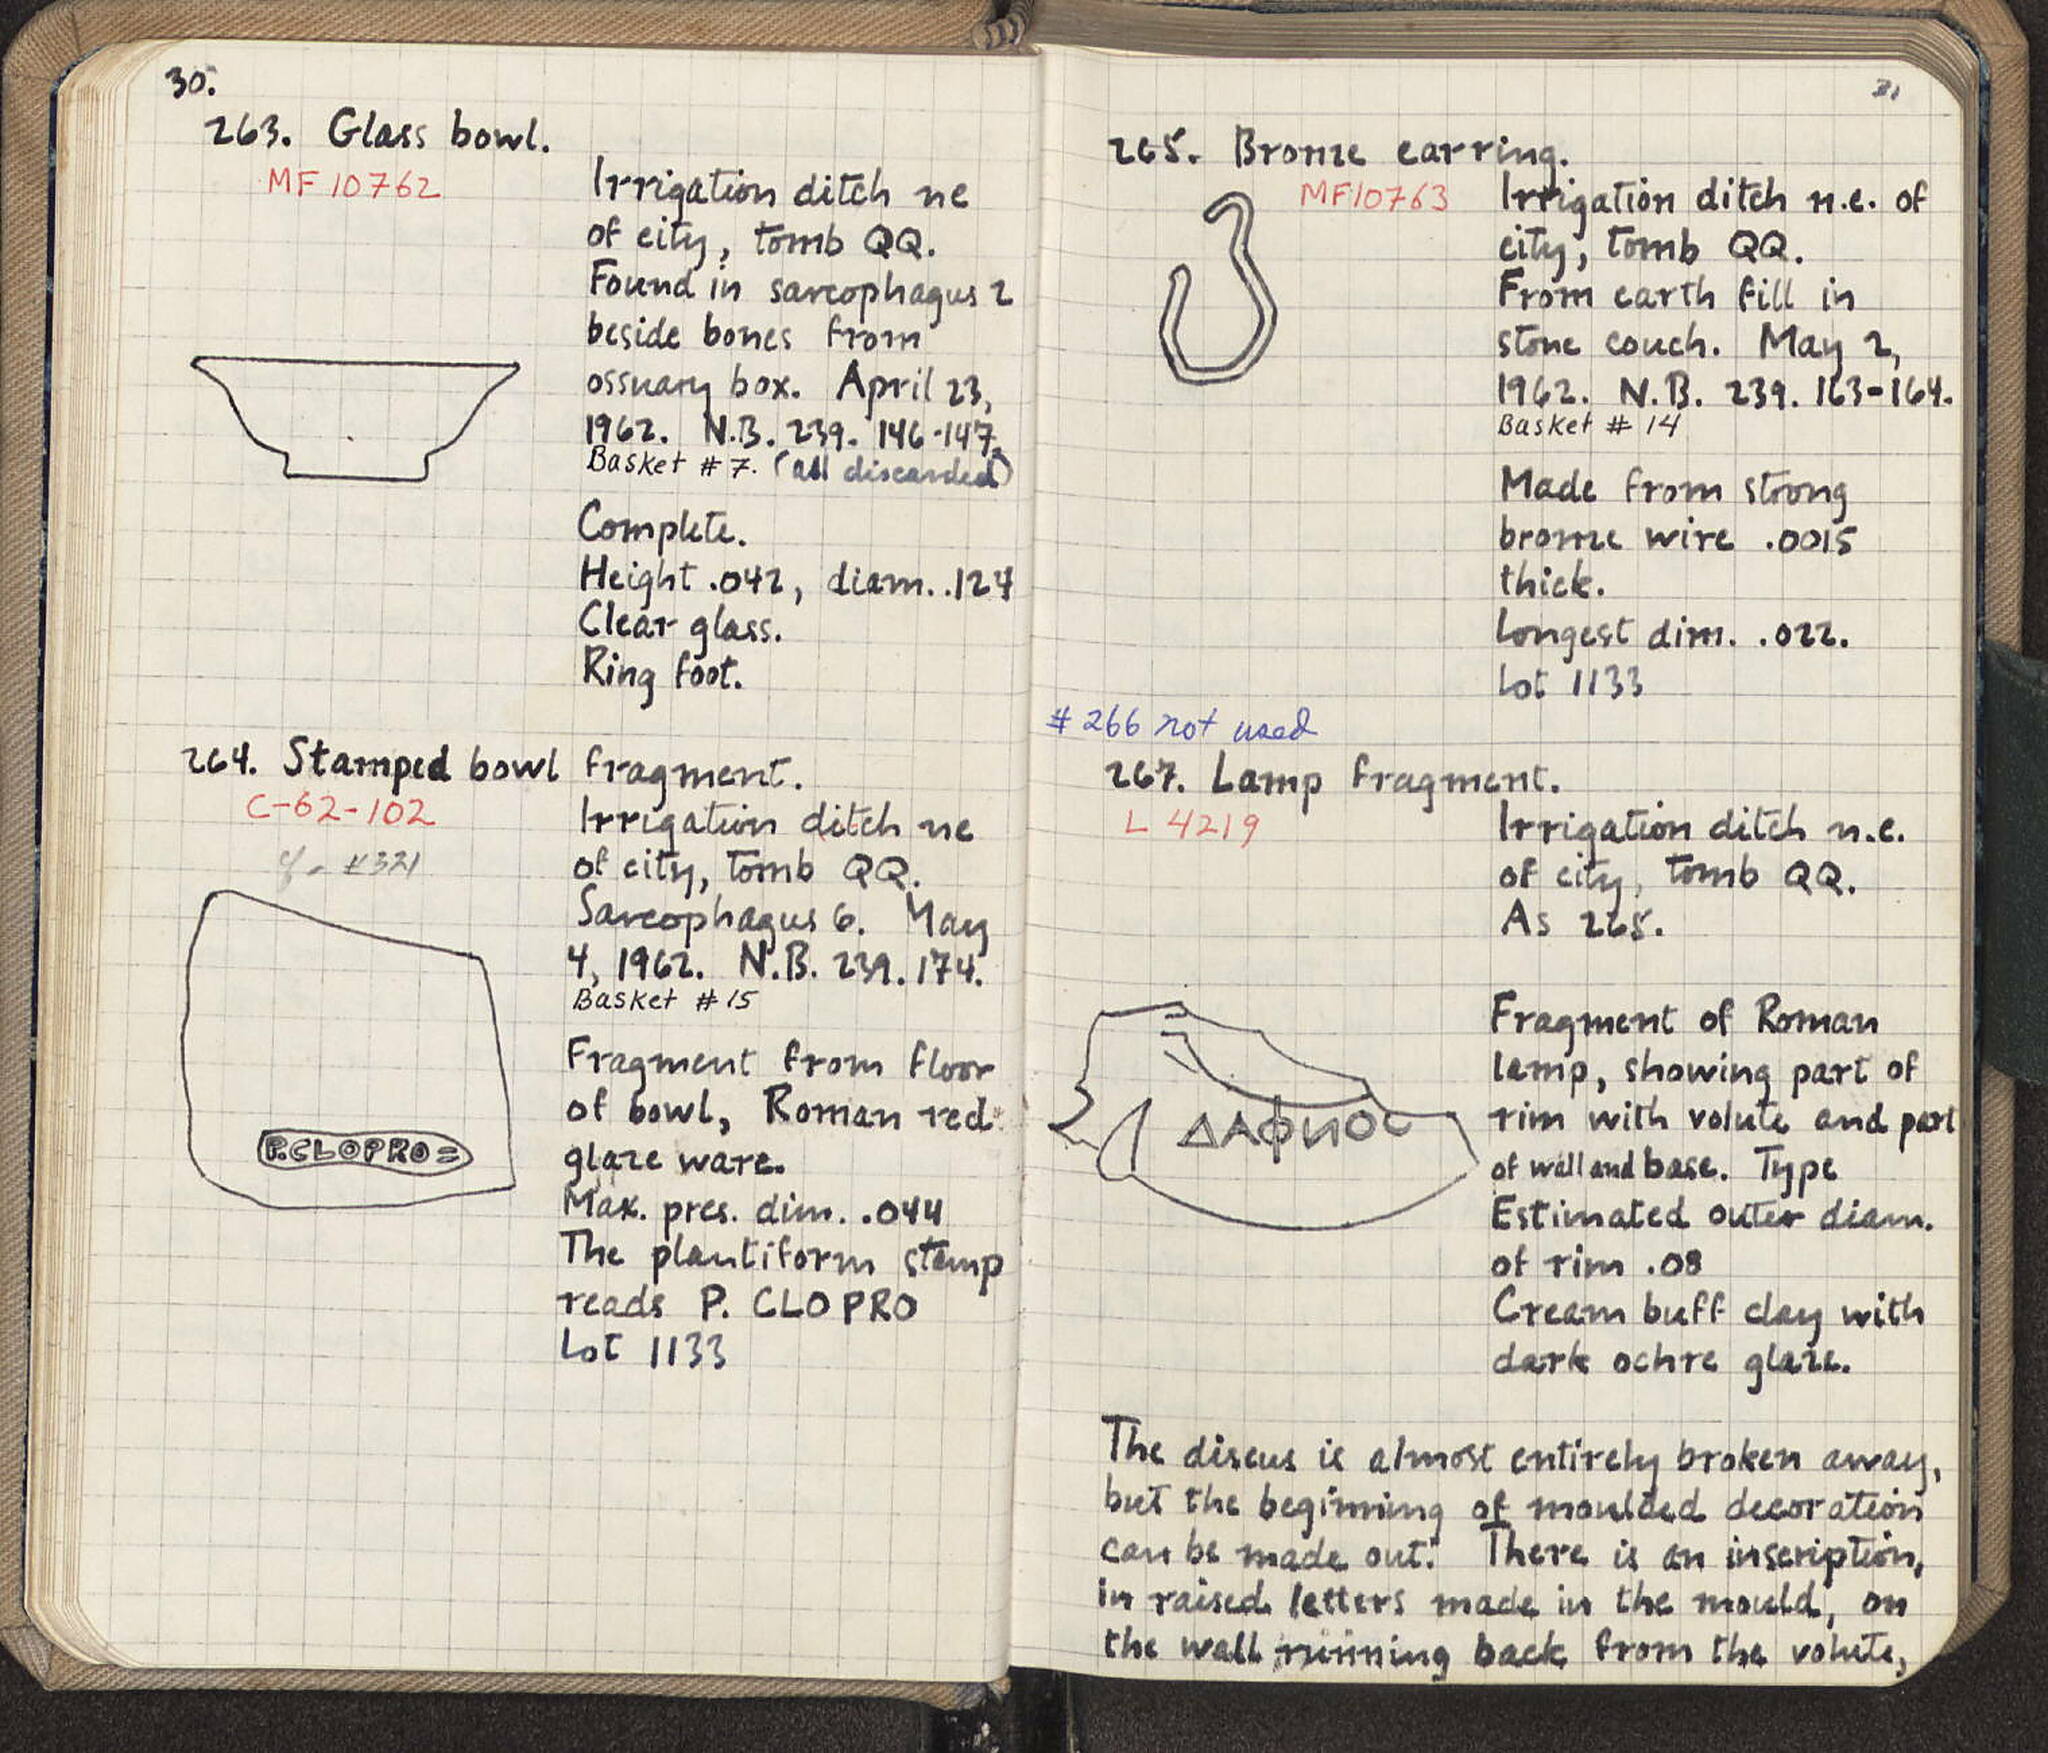 30.
263. Glass bowl.
MF 10762
Irrigation ditch ne
of city, tomb QQ.
Found in sarcophagus 2
beside bones from
ossuary box. April 23,
1962. N.B. 239. 146-147.
Basket #7. (all discarded)
Complete.
Height .042, diam. .124
Clear glass.
Ring foot.
264. Stamped bowl fragment.
C-62-102
cf. #321
Irrigation ditch ne
of city, tomb QQ.
Sarcophagus 6. May
4, 1962. N.B. 239. 174.
Basket #15
Fragment from floor
of bowl, Roman red
glaze ware.
Max. pres. dim. .044
The plantiform stamp
reads P. CLOPRO
Lot 1133
P.CLOPRO=
31
265. Bronze earring.
MF10763
Irrigation ditch n.e. of
city, tomb QQ.
From earth fill in
stone couch. May 2,
1962. N.B. 239. 163-164.
Basket #14
Made from strong
bronze wire .0015
thick.
Longest dim. .022.
Lot 1133
#266 not used
267. Lamp fragment.
L 4219
Irrigation ditch n.e.
of city, tomb QQ.
As 265.
ΔΑΦИΟC
Fragment of Roman
lamp, showing part of
rim with volute and part
of wall and base. Type
Estimated outer diam.
of rim .08
Cream buff clay with
dark ochre glaze.
The discus is almost entirely broken away,
but the beginning of moulded decoration
can be made out. There is an inscription,
in raised letters made in the mould, on
the wall running back from the volute,